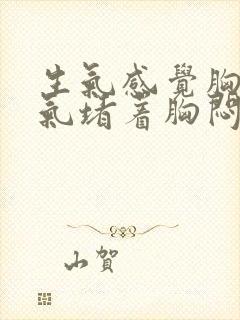 生氣感覺胸
氣堵着胸悶
山賀